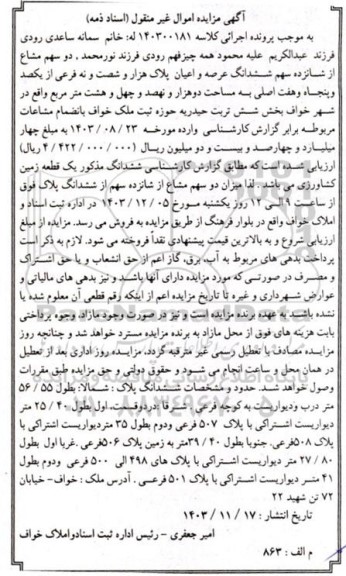 آگهی مزایده اموال غیر منقول (اسناد ذمه)
به موجب پرونده اجرائی کلاسه ۱۴۰۳۰۰۱۸۱ له: خانم سمانه ساعدی رودی
فرزند عبدالکریم علیه محمود همه چیزفهم رودی فرزند نورمحمد ، دو سهم مشاع
از شانزده سهم ششدانگ عرصه و اعیان پلاک هزار و شصت و نه فرعی از یکصد
وپنجاه و هفت اصلی بــه مساحت دوهزار و نهصد و چهل و هشت متر مربع واقع در
شهر خواف بخش شش تربت حیدریه حوزه ثبت ملک خواف بانضمام مشاعات
مربوطــه برابر گزارش کارشناسی وارده مورخــه ۲۳ / ۰۸ / ۱۴۰۳ به مبلغ چهار
میلیـارد و چهارصـد و بیسـت و دو میلیون ریـال (۰۰۰ / ۰۰۰ / ۴۲۲ / ۴ ریال)
ارزیابی شده است که مطابق گزارش کارشناسی ششدانگ مذکور یک قطعه زمین
کشاورزی می باشد . لذا میزان دو سهم مشاع از شانزده سهم از ششدانگ پلاک فوق
از ساعــت ۹ الــی ۱۲ روز یکشنبه مــورخ ۰۵ / ۱۲ / ۱۴۰۳ در اداره ثبت اسناد و
املاک خواف واقع در بلوار فرهنگ از طریق مزایده به فروش می رسد. مزایده از مبلغ
ارزیابی شروع و به بالاترین قیمت پیشنهادی نقداً فروخته می شود. لازم به ذکر است
پرداخت بدهی های مربوط به آب، برق، گاز اعم از حق انشعاب و یا حق اشتراک
و مصـرف در صورتـی که مورد مزایده دارای آنها باشـد و نیز بدهی های مالیاتی و
عوارض شهـرداری و غیره تا تاریخ مزایده اعم از اینکه رقم قطعی آن معلوم شده یا
نشده باشــد به عهده برنده مزایده است و نیز در صورت وجود مازاد، وجوه پرداختی
بابت هزینه های فوق از محل مازاد به برنده مزایده مسترد خواهد شد و چنانچه روز
مزایـده مصادف با تعطیل رسمی غیر مترقبه گردد، مزایـده روز اداری بعد از تعطیل
در همان محل و ساعت انجام می شــود و حقوق دولتی و حق مزایده طبق مقررات
وصول خواهد شد. حدود و مشخصات ششدانگ پلاک : شمالا: بطول ۵۵ / ۵۶
متر درب ودیواریست به کوچه فرعی . شرقا :دردوقست، اول بطول ۴۰ / ۲۵ متر
دیواریست اشتـراکی با پلاک ۵۰۷ فرعی ودوم بطول ۳۵ متردیواریست اشتراکی با
پلاک ۵۰۸فرعی. جنوبا بطول ۴۰ / ۳۹متر به زمین پلاک ۵۰۶فرعی .غربا اول بطول
۸۰ / ۲۷ متر دیواریست اشتراکی با پلاک های ۴۹۸ الی ۵۰۰ فرعی ودوم بطول
۴۱ متــر دیواریست اشتراکی با پلاک ۵۰۱ فرعــی . آدرس ملک : خواف- خیابان
۷۲ تن شهید ۲۲
تاریخ انتشار : ۱۷ / ۱۱ / ۱۴۰۳
امیر جعفری – رئیس اداره ثبت اسنادواملاک خواف
م الف : ۸۶۳